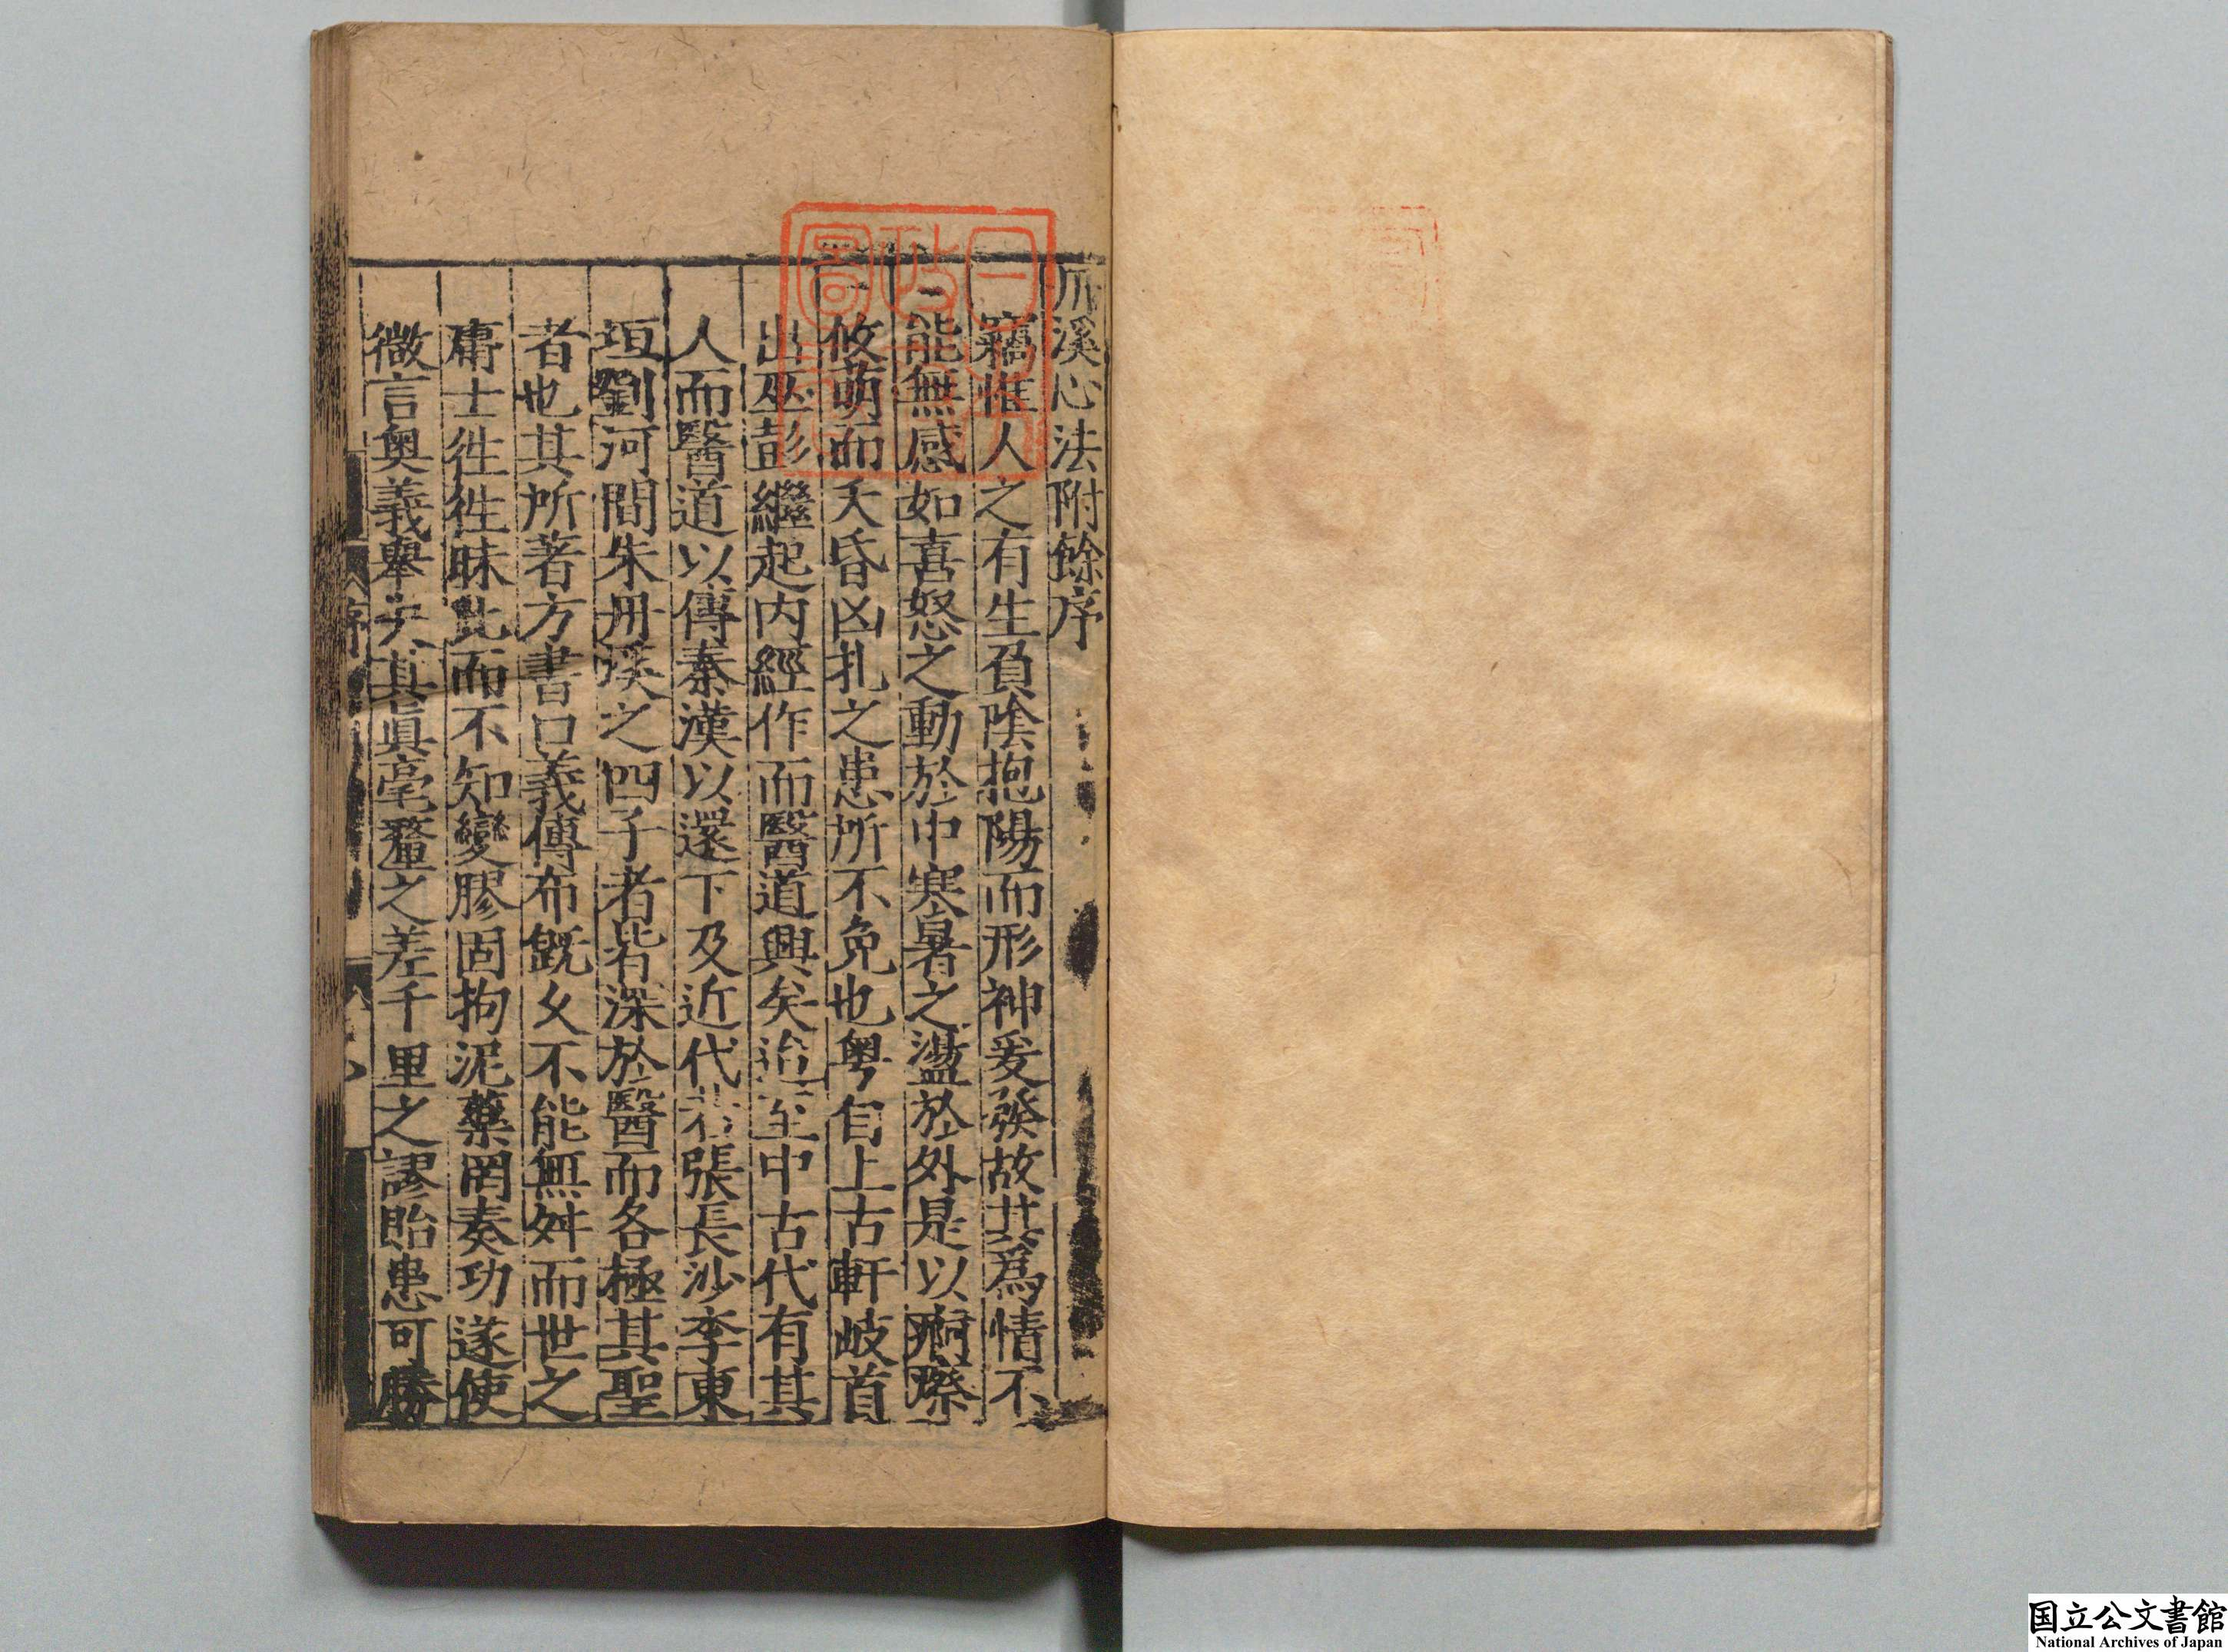 丹溪心法附餘序
竊惟人之有生負陰抱陽而形神爰發故其爲情不
能無感如喜怒之動於中寒暑之盪於外是以痾瘵
攸萌而夭昏凶札之患所不免也粤自上古軒岐首
出巫彭繼起内經作而醫道興矣迨至中古代有其
人而醫道以傳秦漢以還下及近代若張長沙李東
垣劉河間朱丹溪之四子者皆深於醫而各極其聖
者也其所著方書口義傳布旣久不能無舛而世之
庸士徃徃昧此而不知變膠固拘泥藥罔奏功遂使
微言奥義舉失其眞毫釐之差千里之謬貽患可勝
序
日本政府圖書
国立公文書館
National Archives of Japan